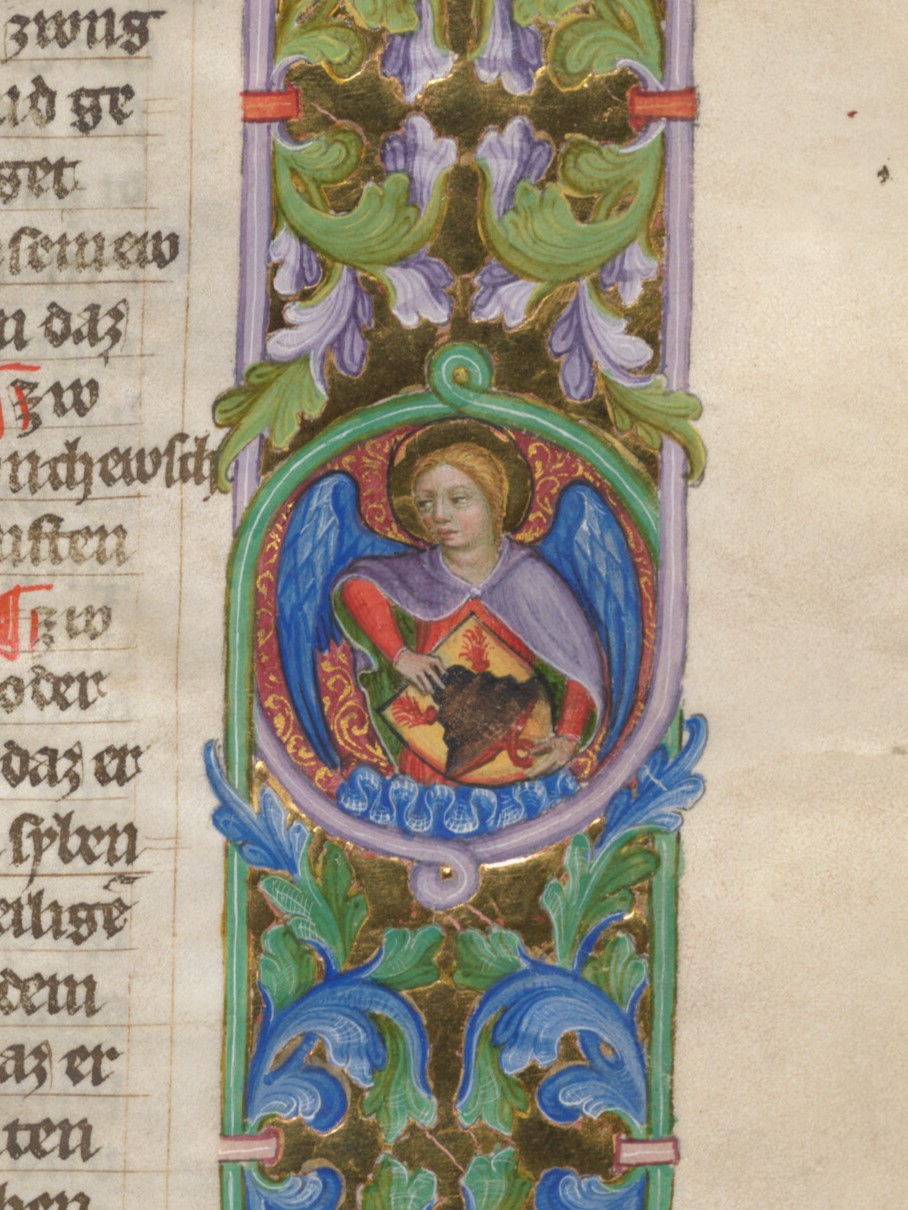 zwng
nd ge
get
semew
n daz
zw
nchewsch
nsten
zw
oder
daz er
sylben
eiligē
dem
az er
ten
hen